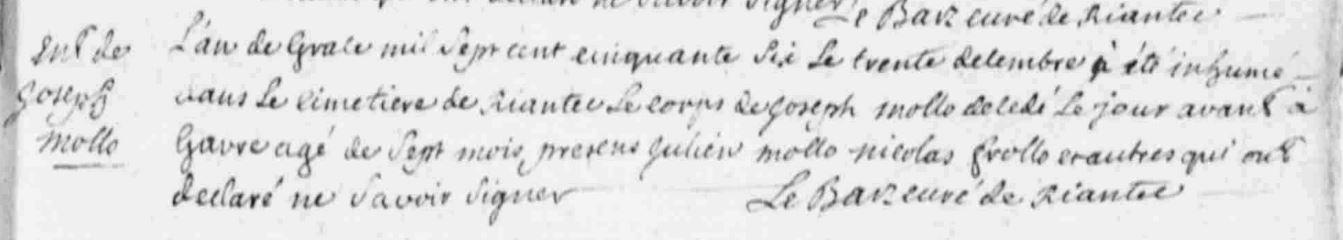 declaré ne Savoir Signer Le Barz curé de Riantec
ent de
Joseph
mollo
L'an de Grace mil Sept cent cinquante Six Le trente decembre à été inhumé
dans Le cimetiere de Riantec Le corps de Joseph mollo decedé Le jour avant à
Gavre agé de Sept mois, presens Julien mollo nicolas Grollo et autres qui ont
declaré ne Savoir Signer Le Barz curé de Riantec